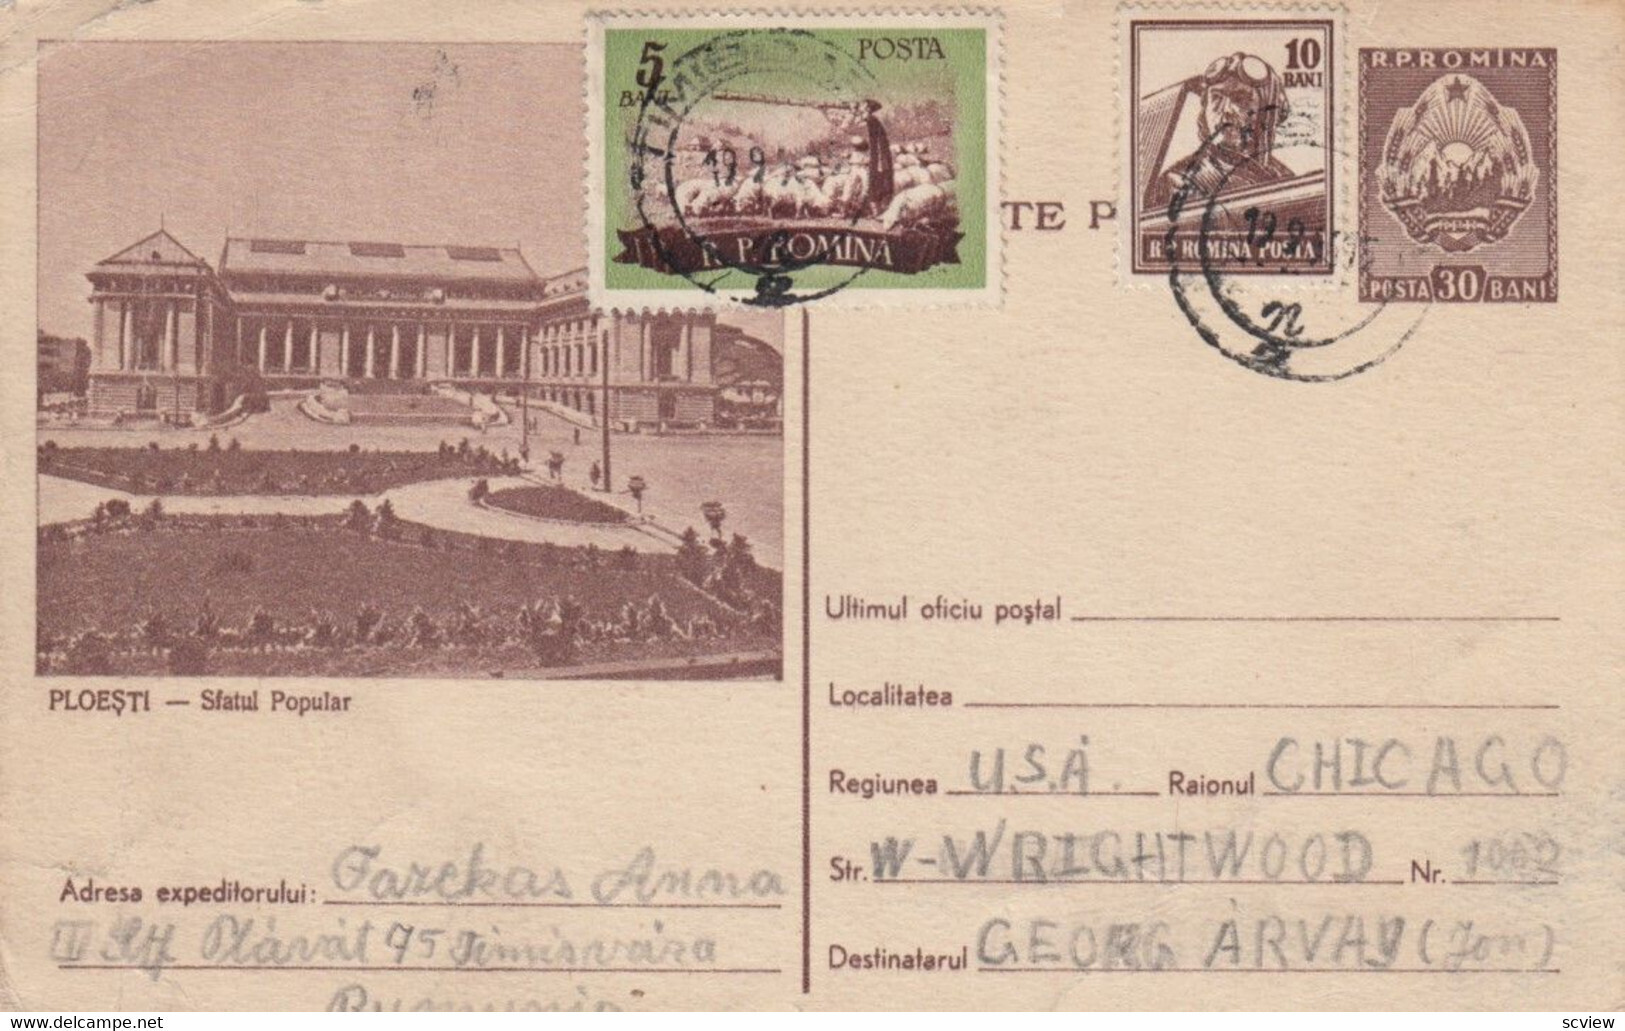 5 BANI POSTA
R. P. ROMINA
TIMIȘOARA
TE P
10 BANI
R.P. ROMINA POSTA
R.P.ROMINA
POSTA 30 BANI
PLOEȘTI — Sfatul Popular
Ultimul oficiu poștal
Localitatea
Regiunea U.S.A. Raionul CHICAGO
Str. W-WRIGHTWOOD Nr. 1062
Destinatarul GEORG ÁRVAY (Jon)
Adresa expeditorului: Fazekas Anna
IV Plávát 75 Timisvára
Rumunia
scview